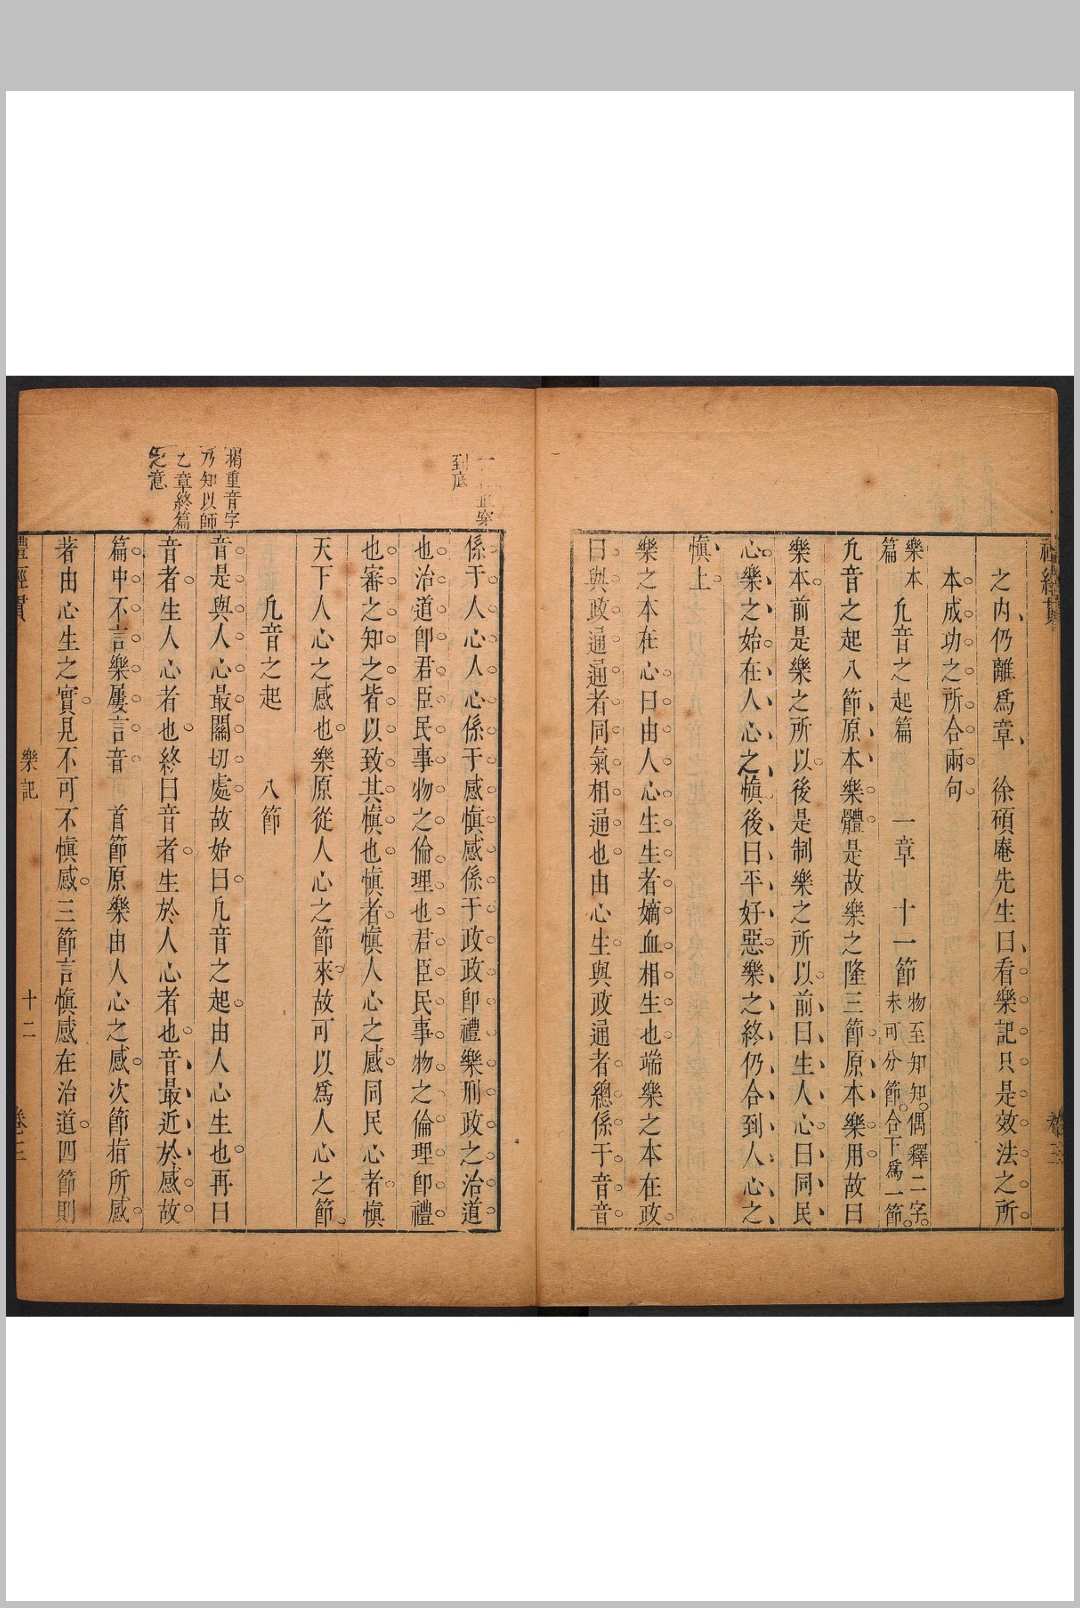 禮經貫
卷三
之内仍離爲章 徐碩庵先生曰看樂記只是效法之所
本成功之所合兩句
樂本
篇
凢音之起篇 一章 十一節
物至知知偶釋二字
未可分節合下爲一節
凢音之起八節原本樂體是故樂之隆三節原本樂用故曰
樂本前是樂之所以後是制樂之所以前曰生人心曰同民
心樂之始在人心之愼後曰平好惡樂之終仍合到人心之
愼上
樂之本在心曰由人心生生者嫡血相生也端樂之本在政
曰與政通通者同氣相通也由心生與政通者總係于音音
到底
係于人心人心係于感愼感係于政政卽禮樂刑政之治道
也治道卽君臣民事物之倫理也君臣民事物之倫理卽禮
也審之知之皆以致其愼也愼者愼人心之感同民心者愼
天下人心之感也樂原從人心之節來故可以爲人心之節
凢音之起 八節
揭重音字
乃知以師
乙章終篇
之意
音是與人心最關切處故始曰凢音之起由人心生也再曰
音者生人心者也終曰音者生於人心者也音最近於感故
篇中不言樂屢言音 首節原樂由人心之感次節指所感
著由心生之實見不可不愼感三節言愼感在治道四節則
禮經貫
樂記
十二
卷三